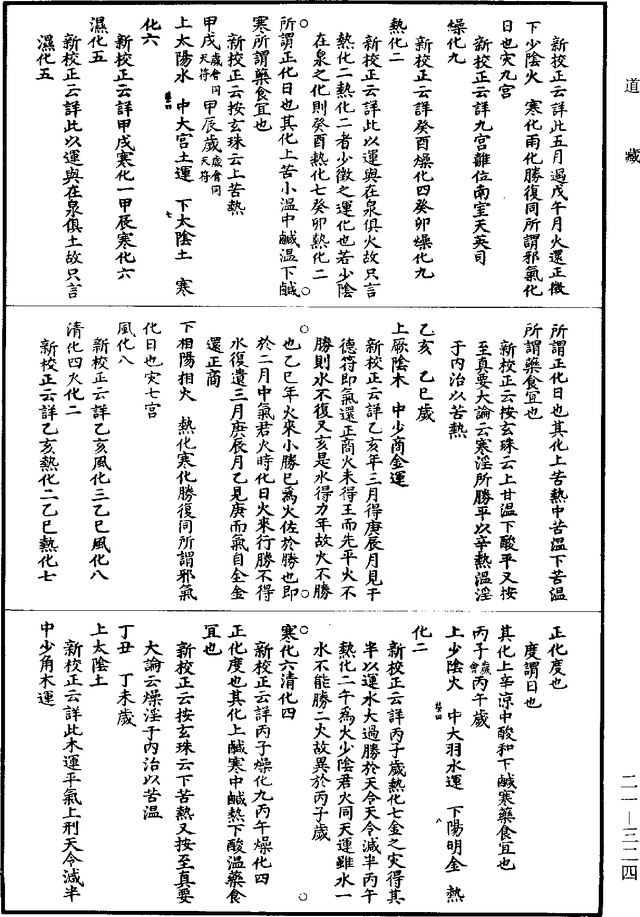 道藏
新校正云詳此五月過戊午月火還正徵
下少陰火　寒化雨化勝復同所謂邪氣化
日也灾九宮
新校正云詳九宮離位南室天英司
燥化九
新校正云詳癸酉燥化四癸卯燥化九
熱化二
新校正云詳此以運與在泉俱火故只言
熱化二熱化二者少徵之運化也若少陰
在泉之化則癸酉熱化七癸卯熱化二
所謂正化日也其化上苦小溫中鹹溫下鹹
寒所謂藥食宜也
新校正云按玄珠云上苦熱
甲戌歲會同天符　甲辰歲歲會同天符
上太陽水　中大宮土運　下太陰土　寒
化六
新校正云詳甲戌寒化一甲辰寒化六
濕化五
新校正云詳此以運與在泉俱土故只言
濕化五
所謂正化日也其化上苦熱中苦溫下苦溫
所謂藥食宜也
新校正云按玄珠云上甘溫下酸平又按
至真要大論云寒淫所勝平以辛熱濕淫
于內治以苦熱
乙亥　乙巳歲
上厥陰木　中少商金運
新校正云詳乙亥年三月得庚辰月見干
德符即氣還正商火未得王而先平火不
勝則水不復又亥是水得力年故火不勝
也乙巳年火來小勝巳為火佐於勝也即
於二月中氣君火時化日火來行勝不得
水復遺三月庚辰月乙見庚而氣自全金
還正商
下相陽相火　熱化寒化勝復同所謂邪氣
化日也灾七宮
風化八
新校正云詳乙亥風化三乙巳風化八
清化四火化二
新校正云詳乙亥熱化二乙巳熱化七
正化度也
度謂日也
其化上辛涼中酸和下鹹寒藥食宜也
丙子歲會丙午歲
上少陰火　中大羽水運　下陽明金　熱
化二
新校正云詳丙子歲熱化七金之灾得其
半以運水大過勝於天令天令減半丙午
熱化二午為火少陰君火同天運雖水一
水不能勝二火故異於丙子歲
寒化六清化四
新校正云詳丙子燥化九丙午燥化四
正化度也其化上鹹寒中鹹熱下酸溫藥食
宜也
新校正云按玄珠云下苦熱又按至真要
大論云燥淫于內治以苦溫
丁丑　丁未歲
上太陰土
新校正云詳此木運平氣上刑天令減半
中少角木運
二一—三二四